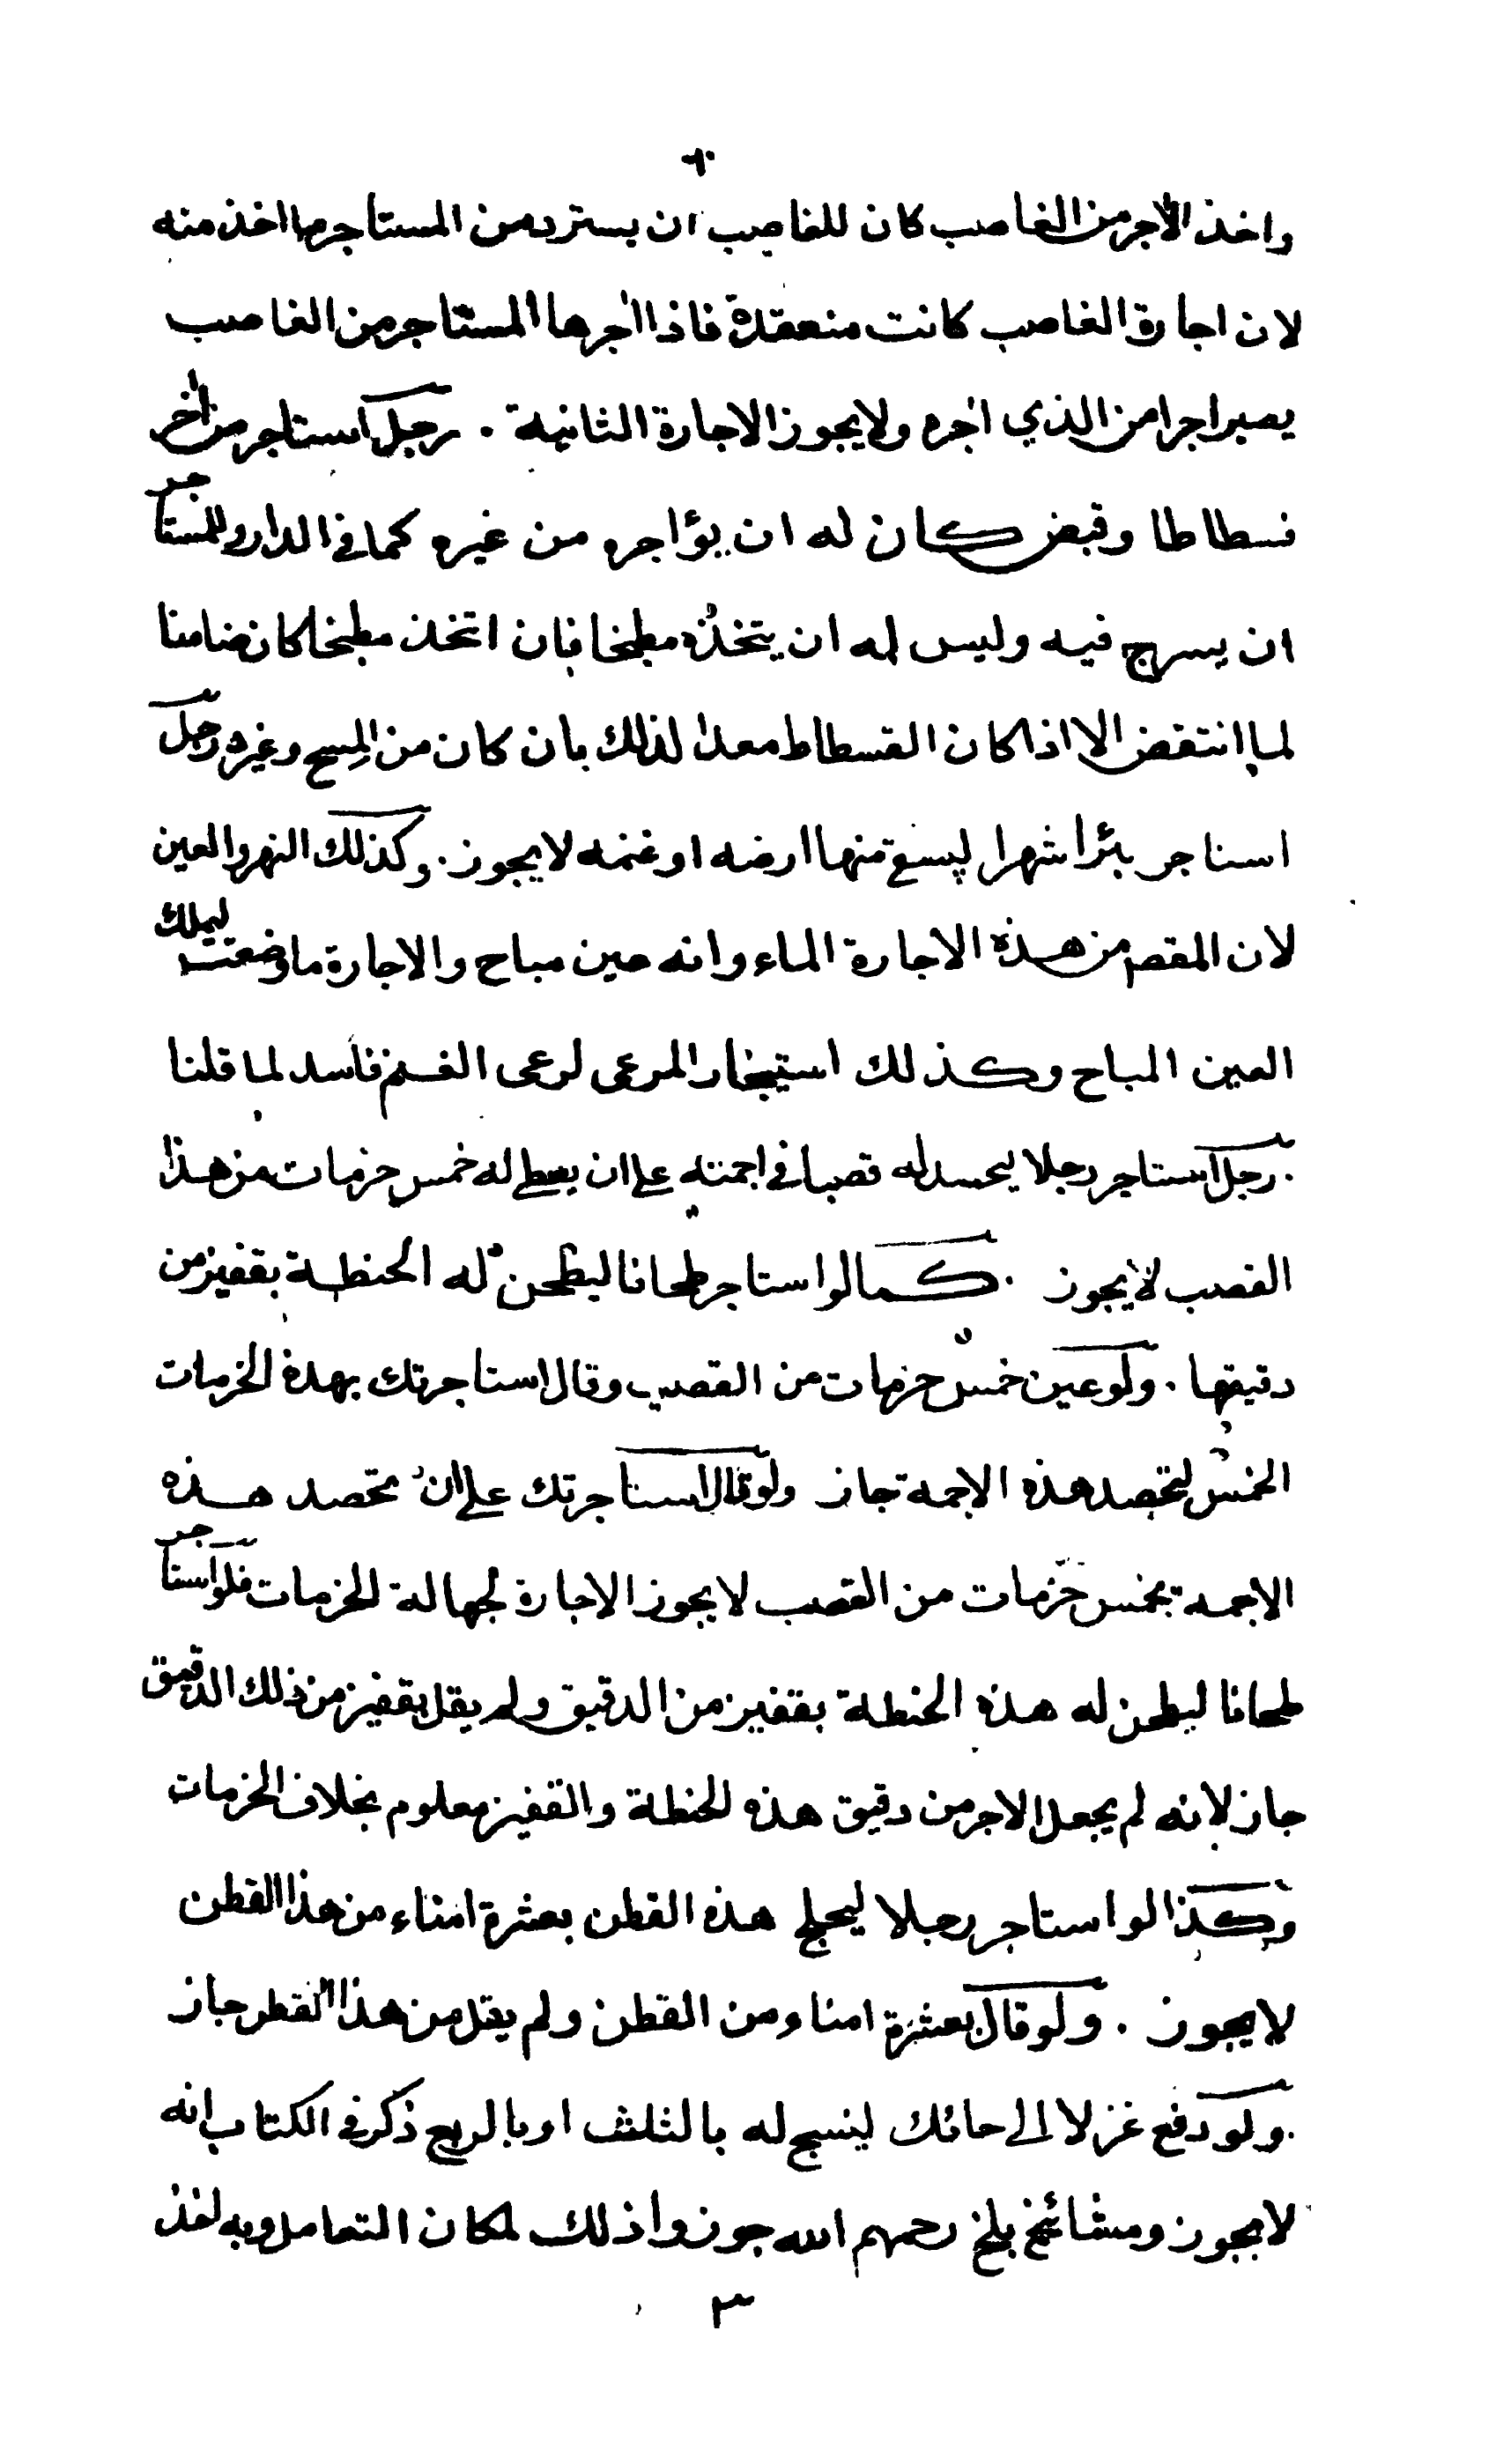 واخذ الاجر من الغاصب كان للغاصب ان يسترد من المستاجر ما اخذ منه
لان اجارة الغاصب كانت منعقدة فاذا اجرها المستاجر من الغاصب
يصير اجرا من الذي اجره ولا يجوز الاجارة الثانية . رجل استاجر من اخر
فسطاطا وقبض كان له ان يؤاجره من غيره كما في الدار وللمستاجر
ان يسرج فيه وليس له ان يتخذه مطبخا فان اتخذ مطبخا كان ضامنا
لما انتقض الا اذا كان الفسطاط معدا لذلك بان كان من المسح وغيره رجل
استاجر بئرا شهرا ليسقي منها ارضه او غنمه لا يجوز . وكذلك النهر والعين
لان المقصد من هذه الاجارة الماء وانه عين مباح والاجارة ما وضعت ليملك
العين المباح وكذلك استيجار المرعى لرعي الغنم فاسد لما قلنا
. رجل استاجر رجلا ليحصد له قصبا في اجمته على ان يعطي له خمس حزمات من هذا
القصب لا يجوز . كما لو استاجر طحانا ليطحن له الحنطة بقفيز من
دقيقها . ولو عين خمس حزمات من القصب وقال استاجرتك بهذه الحزمات
الخمس لتحصد هذه الاجمة جاز ولو قال استاجرتك على ان تحصد هذه
الاجمة بخمس حزمات من القصب لا يجوز الاجارة لجهالة الحزمات فلو استاجر
طحانا ليطحن له هذه الحنطة بقفيز من الدقيق ولم يقل بقفيز من ذلك الدقيق
جاز لانه لم يجعل الاجر من دقيق هذه الحنطة والقفيز معلوم بخلاف الحزمات
وكذا لو استاجر رجلا ليحلج هذه القطن بعشرة امناء من هذا القطن
لا يجوز . ولو قال بعشرة امناء من القطن ولم يقل من هذا القطن جاز
. ولو دفع غزلا الى حائك لينسج له بالثلث او بالربع ذكر في الكتاب انه
لا يجوز ومشائخ بلخ رحمهم الله جوزوا ذلك لمكان التعامل وبه اخذ
٣